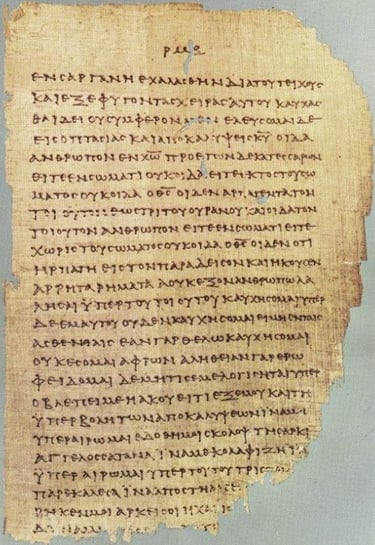 ΕΝ ΣΑΡΓΑΝΗ ΕΧΑΛΑΣΘΗΝ ΔΙΑ ΤΟΥ ΤΕΙΧΟΥΣ
ΚΑΙ ΕΞΕΦΥΓΟΝ ΤΑΣ ΧΕΙΡΑΣ ΑΥΤΟΥ ΚΑΥΧΑΣ
ΘΑΙ ΔΕΙ ΟΥ ΣΥΜΦΕΡΟΝ ΕΛΕΥΣΟΜΑΙ ΔΕ
ΕΙΣ ΟΠΤΑΣΙΑΣ ΚΑΙ ΑΠΟΚΑΛΥΨΕΙΣ ΚΥ ΟΙΔΑ
ΑΝΘΡΩΠΟΝ ΕΝ ΧΩ ΠΡΟ ΕΤΩΝ ΔΕΚΑΤΕΣΣΑΡΩΝ
ΕΙΤΕ ΕΝ ΣΩΜΑΤΙ ΟΥΚ ΟΙΔΑ ΕΙΤΕ ΕΚΤΟΣ ΤΟΥ ΣΩ
ΜΑΤΟΣ ΟΥΚ ΟΙΔΑ Ο ΘΣ ΟΙΔΕΝ ΑΡΠΑΓΕΝΤΑ ΤΟΝ
ΕΩΣ ΤΡΙΤΟΥ ΟΥΡΑΝΟΥ ΚΑΙ ΟΙΔΑ ΤΟΝ
ΤΟΙΟΥΤΟΝ ΑΝΘΡΩΠΟΝ ΕΙΤΕ ΕΝ ΣΩΜΑΤΙ ΕΙΤΕ
ΧΩΡΙΣ ΤΟΥ ΣΩΜΑΤΟΣ ΟΥΚ ΟΙΔΑ Ο ΘΣ ΟΙΔΕΝ ΟΤΙ
ΗΡΠΑΓΗ ΕΙΣ ΤΟΝ ΠΑΡΑΔΕΙΣΟΝ ΚΑΙ ΗΚΟΥΣΕΝ
ΑΡΡΗΤΑ ΡΗΜΑΤΑ Α ΟΥΚ ΕΞΟΝ ΑΝΘΡΩΠΩ ΛΑ
ΛΗΣΑΙ ΫΠΕΡ ΤΟΥ ΤΟΙΟΥΤΟΥ ΚΑΥΧΗΣΟΜΑΙ ΫΠΕΡ
ΔΕ ΕΜΑΥΤΟΥ ΟΥΔΕΝ ΚΑΥΧΗΣΟΜΑΙ ΕΙ ΜΗ ΕΝ ΤΑΙΣ
ΑΣΘΕΝΕΙΑΙΣ ΕΑΝ ΓΑΡ ΘΕΛΩ ΚΑΥΧΗΣΟΜΑΙ
ΟΥΚ ΕΣΟΜΑΙ ΑΦΡΩΝ ΑΛΗΘΕΙΑΝ ΓΑΡ ΕΡΩ
ΦΕΙΔΟΜΑΙ ΔΕ ΜΗ ΤΙΣ ΕΜΕ ΛΟΓΙΣΗΤΑΙ ΫΠΕΡ
Ο ΒΛΕΠΕΙ ΜΕ Η ΑΚΟΥΕΙ ΤΙ ΕΞ ΕΜΟΥ ΚΑΙ ΤΗ
ΫΠΕΡΒΟΛΗ ΤΩΝ ΑΠΟΚΑΛΥΨΕΩΝ ΪΝΑ ΜΗ
ΥΠΕΡΑΙΡΩΜΑΙ ΕΔΟΘΗ ΜΟΙ ΣΚΟΛΟΨ ΤΗ ΣΑΡΚΙ
ΑΓΓΕΛΟΣ ΣΑΤΑΝΑ ΪΝΑ ΜΕ ΚΟΛΑΦΙΖΗ
ΫΠΕΡΑΙΡΩΜΑΙ ΫΠΕΡ ΤΟΥΤΟΥ ΤΡΙΣ
ΠΑΡΕΚΑΛΕΣΑ ΪΝΑ ΑΠΟΣΤΗ
ΚΕΝ ΜΟΙ ΑΡΚΕΙ ΣΟΙ Η ΧΑΡΙΣ